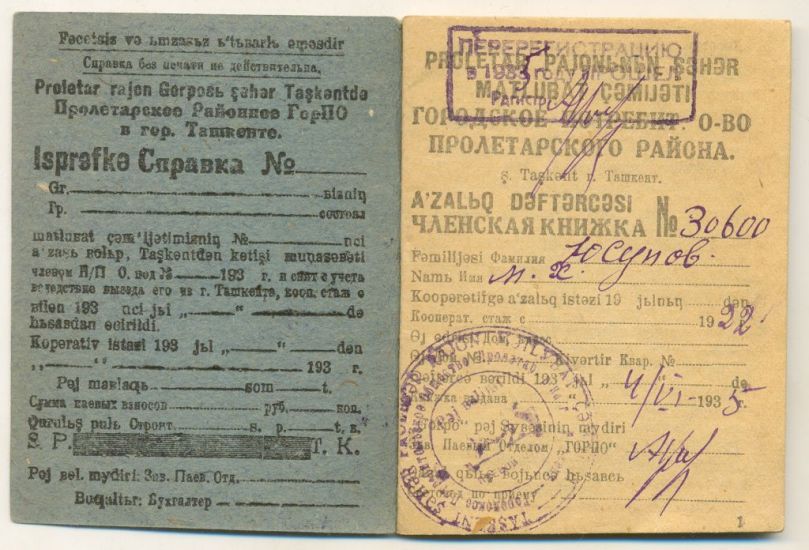 Fecetsiz və ьmzasьz e'tьbarlь eməsdir
Справка без печати не действительна.
Proletar rajon Gorposь şəhər Taşkəntdə
Пролетарское Районное ГорПО
в гор. Ташкенте.
Isprəfkə Справка №
Gr. bizniŋ
Гр. состоял
matluвat çəm'ijətimizniŋ № nci
a'zasь воlьр, Taşkəntdən ketişi munasəвəti
членом П/П О. вод № 193 г. и снят с учета
вследствие выезда его из г. Ташкента, кооп. стаж с
вilən 193 nci jьl „ “ də
hьsaвdan ɵcirildi.
Koperativ istaƶi 193 jьl „ “ dən
„ “ 193 г.
Pəj maвlaƣь som t.
Сумма паевых взносов руб. коп.
Qurulьş pulь Строит. s. p. t. в.
S. P. T. K.
Pəj вɵl. mydiri: Зав. Паев. Отд.
Buqaltьr: Бухгалтер
ПЕРЕРЕГИСТРАЦИЮ
в 1935 году ПРОШЕЛ
Регистр.
PROLETAR RAJONЬNЬN ŞƏHƏR
MATLUBAT ÇƏMIJƏTI
ГОРОДСКОЕ ПОТРЕБИТ. О-ВО
ПРОЛЕТАРСКОГО РАЙОНА.
ş. Taşkənt г. Ташкент.
A'ZALЬQ DƏFTƏRCƏSI
ЧЛЕНСКАЯ КНИЖКА № 30600
Fəmilijəsi Фамилия Юсупов.
Namь Имя М. Х.
Kooperətifgə a'zalьq istəƶi 19 jьlnьŋ dən
Кооперат. стаж с 1922
Kivərtir Квар. №
вerildi 193 jьl „ “ də
выдана 4/VI - 1935
pəj şɵвəsiniŋ mydiri
Зав. Паевым Отделом „ГОРПО“
вojьncь hьsaвcь
по приему
1